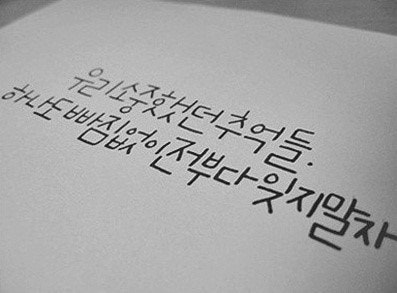 우리 소중했던 추억들.
하나도 빠짐없이 전부 다 잊지말자